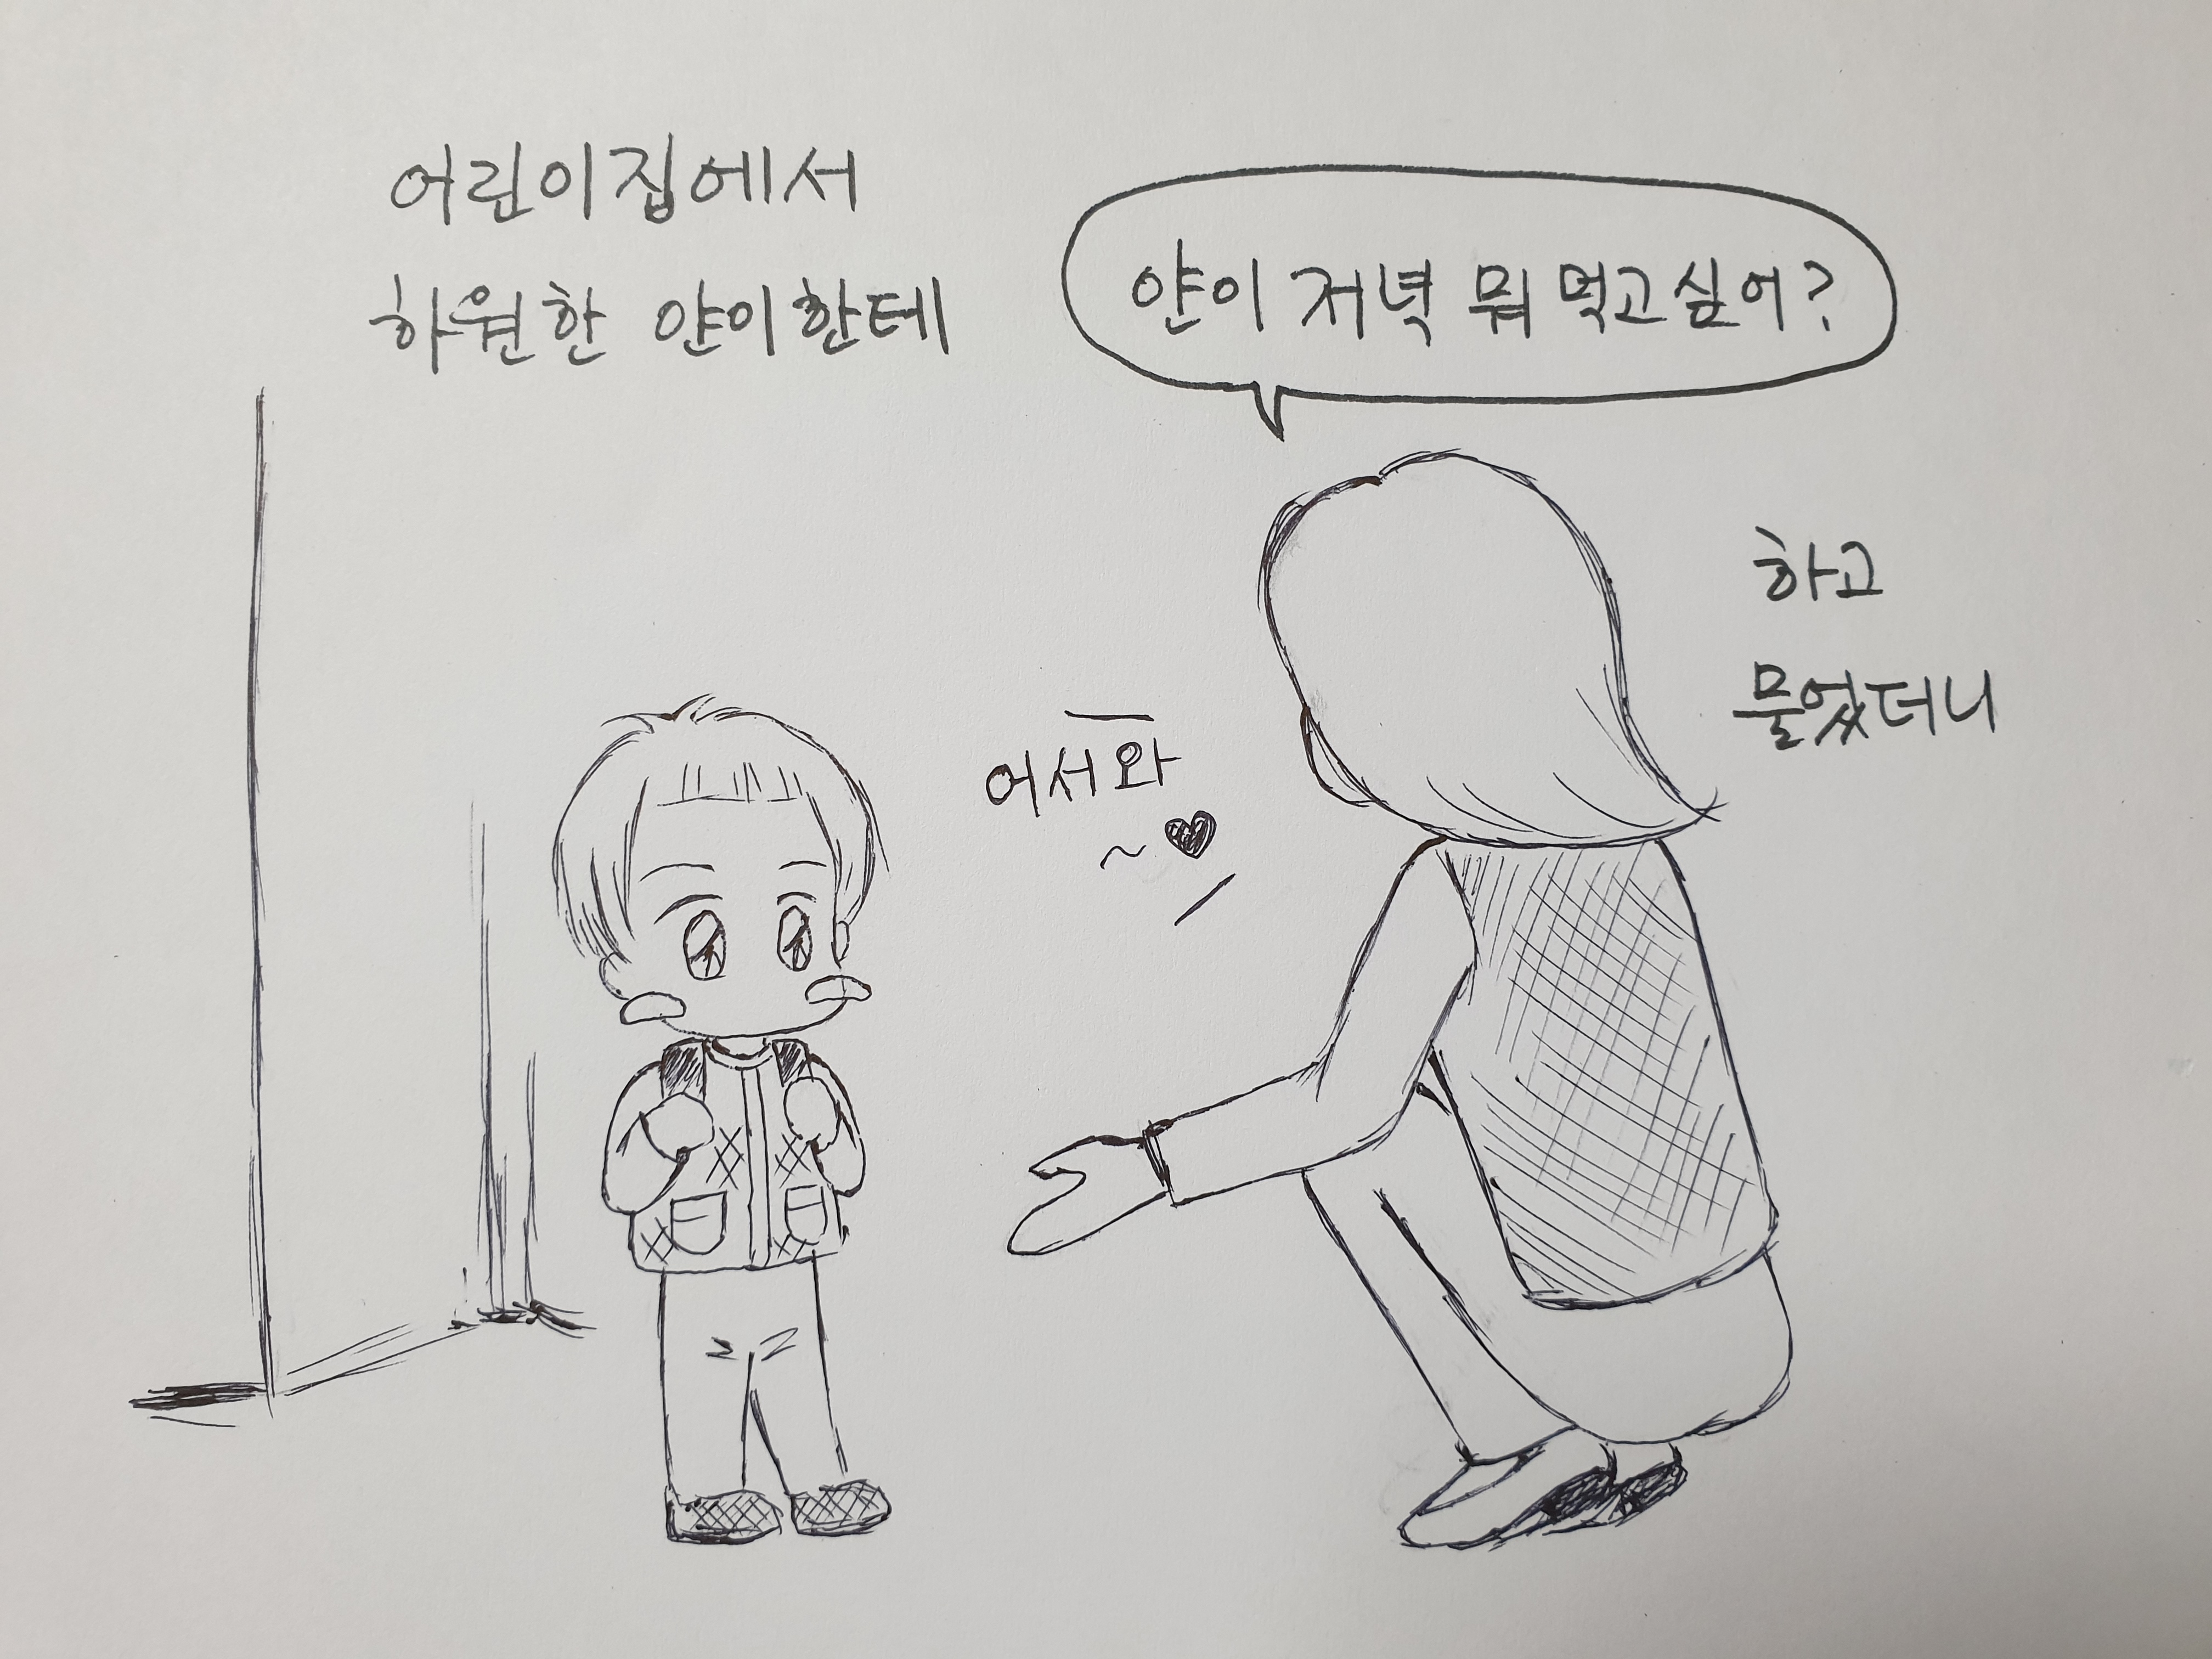 어린이집에서
하원한 얀이한테
얀이 저녁 뭐 먹고싶어?
하고
물었더니
어서와
~♥